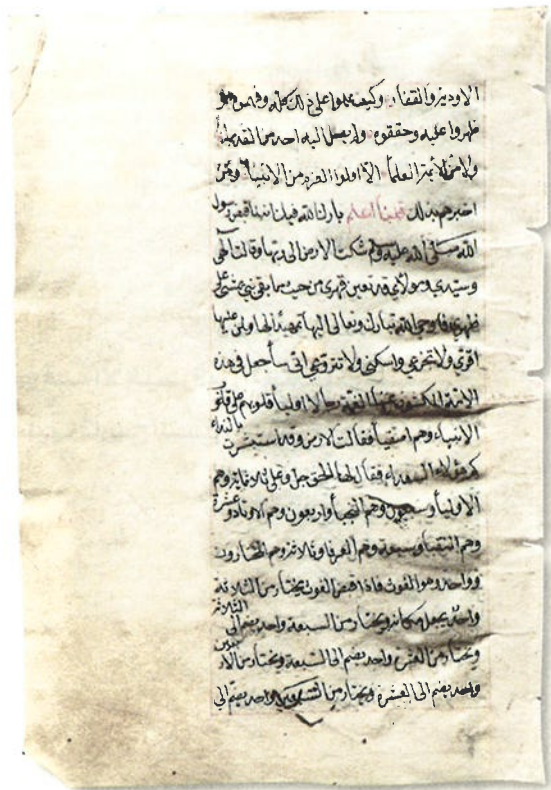 الاودية والقفار وكيف عملوا على ذلك كله وفيمن هو
ظهروا عليه وحققوه ولم يصل اليه احد من القدماء
ولا من الائمة العلمأ الا اولوا العزم من الانبيأ ومن
اخبرهم بذلك اعلم بارك الله فيك لما قبض رسول
الله صلى الله عليه وسلم شكت الارض الى ربها وقالت الهي
وسيدي ومولاي قد تعين قهري من حيث ما بقي نبي يمشي على
ظهري فاوحى الله تبارك وتعالى اليها تمهيدا لها ولمن عليها
اقري ولا تجزعي واسكني ولا تتروعي اني سأجعل في هذه
الامة رجالا اوليأ قلوبهم على قلوب
الانبياء وهم اصفيأ فقالت الارض وقد استبشرت بالنداء
كم هؤلاء السعداء فقال لها الحق جل وعلى ثلاثماية وهم
الاوليأ وسبعون وهم النجبأ واربعون وهم الاوتاد وعشرة
وهم النقبا وسبعة وهم العرفا وثلاثة وهم المختارون
وواحد وهو الغوث فاذا قبض الغوث يختار من الثلاثة
واحد يجعل مكانه ويختار من السبعة واحد يضم الى الثلاثة
ويختار من العشرة واحد يضم الى السبعة ويختار من الاربعين
واحد يضم الى العشرة ويختار من السبعين واحد يضم الى